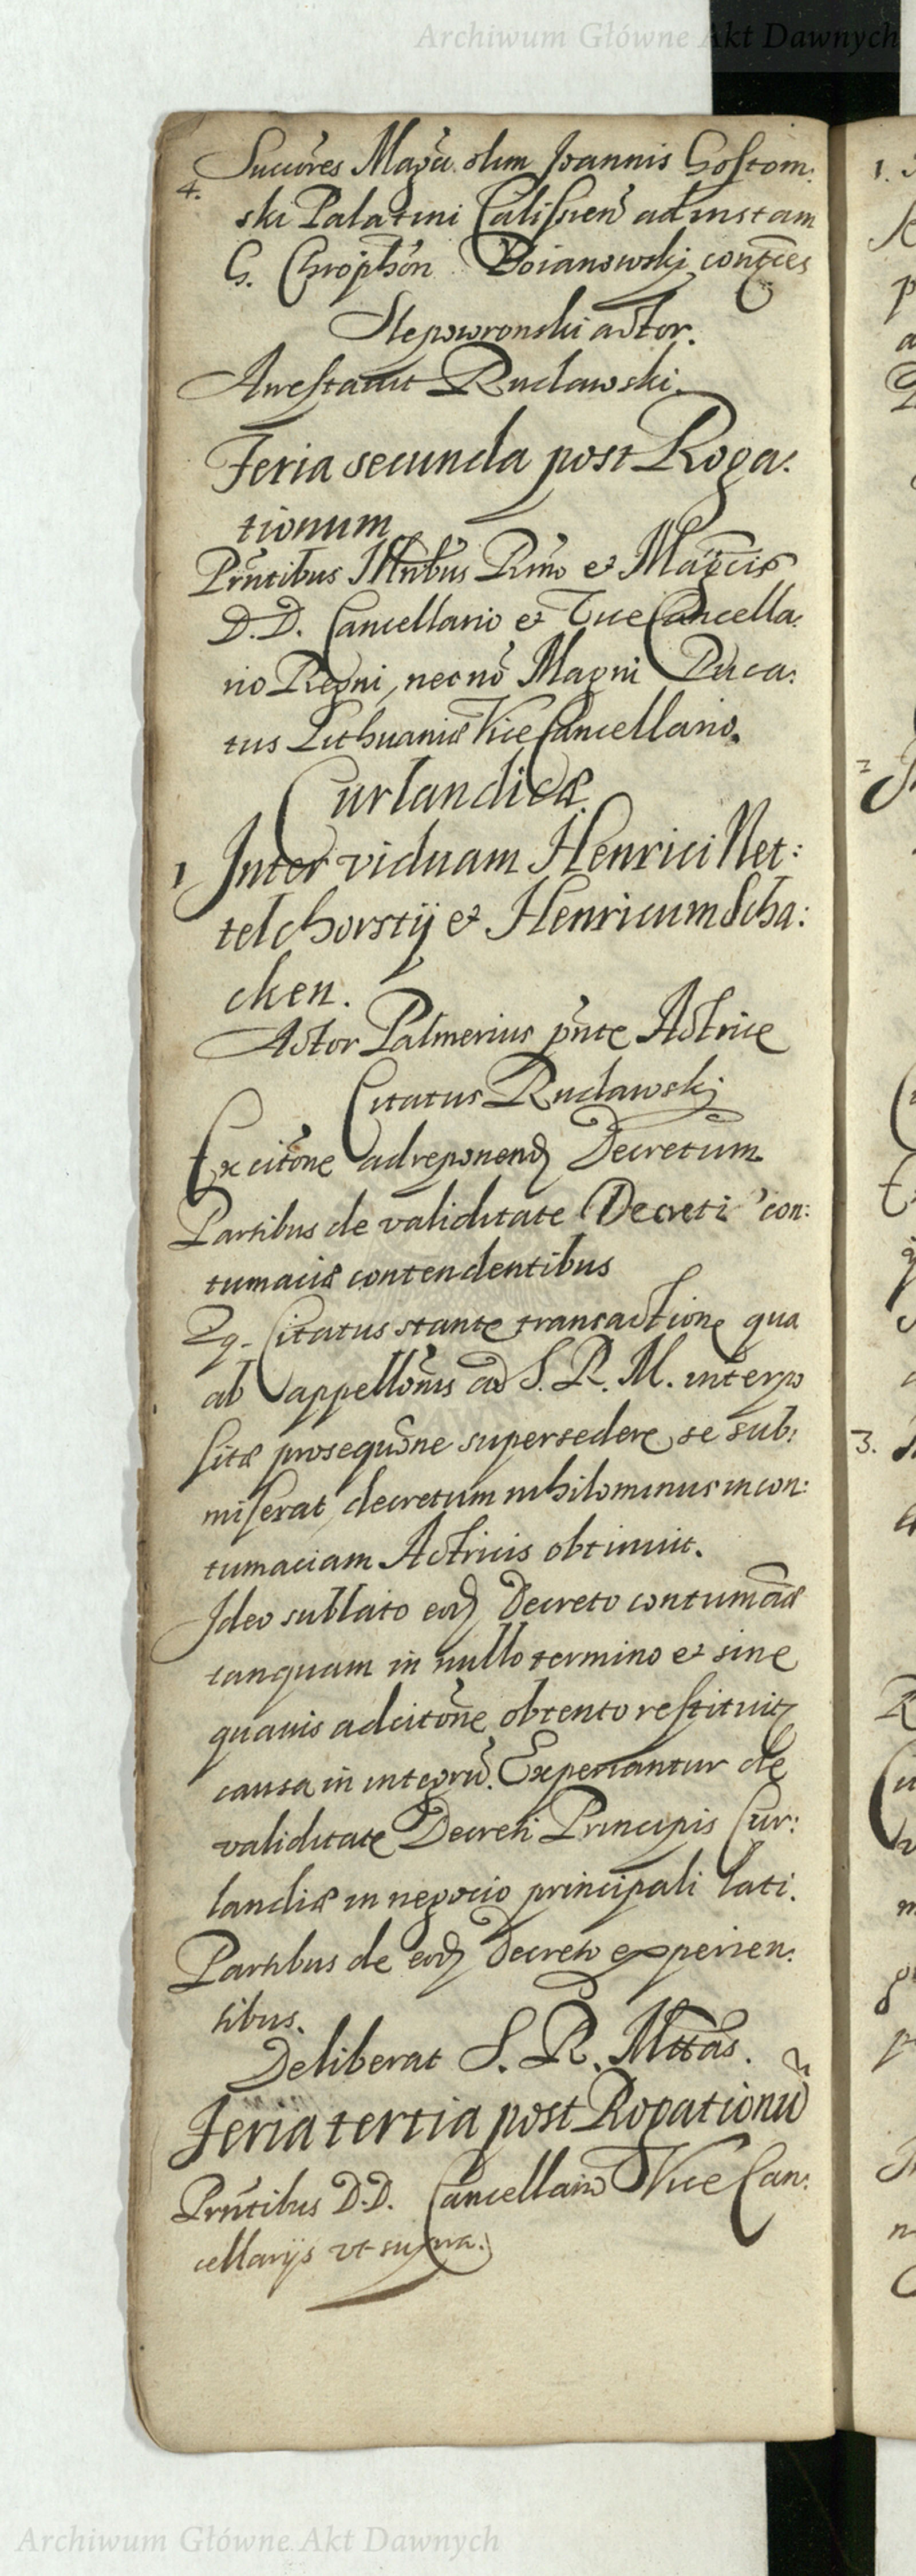 Archiwum Główne Akt Dawnych
4. Succres Magci olim Joannis Gostom:
ski Palatini Calissien ad instam
G. Chrophori Boianowski conteces
Slepowronski actor.
Arrestavit Rudawski.
Feria secunda post Roga:
tionum
Prntibus Illribus Rmo et Magcis
D.D. Cancellario et Vice Cancella:
rio Regni, necno Magni Duca:
tus Lithuaniæ Vice Cancellario.
Curlandicæ.
1 Inter viduam Henrici Net:
telchorstij et Henricum Scha:
cken.
Actor Palmerius pnte Actrice
Citatus Rudawskj
Ex citone ad reponend Decretum
Partibus de validitate Decreti con:
tumaciæ contendentibus
Zq. Citatus stante transactione qua
ab appellonis ad S. R. M. interpo
sitæ prosequone supersedere se sub:
miserat, decretum nihilominus in con:
tumaciam Actricis obtinuit.
Ideo sublato eod Decreto contumaciæ
tanquam in nullo termino et sine
quavis adcitone obtento restituitz
causa in integru. Experiantur de
validitate Decreti Principis Cur:
landiæ in negocio principali lati.
Partibus de eod Decreto experien:
tibus.
Deliberat S. R. Mttas.
Feria tertia post Rogationu
Prntibus D.D. Cancellario Vice Can:
cellarijs ut supra.
1.
2
3.
Archiwum Główne Akt Dawnych